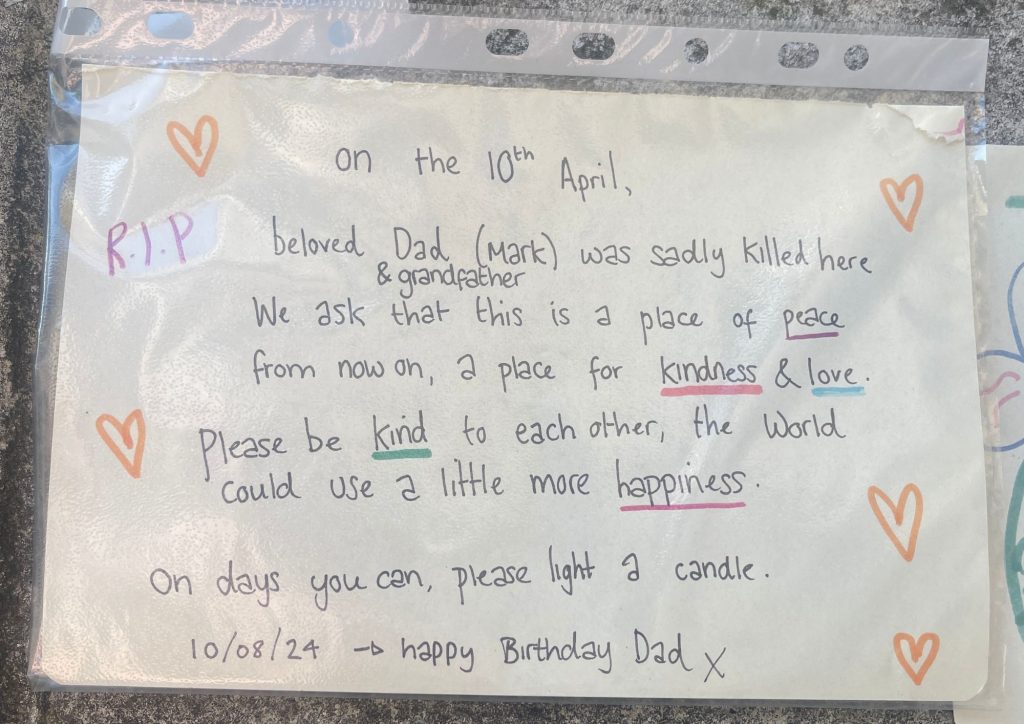 on the 10th April,
R.I.P
beloved Dad (Mark) was sadly killed here
& grandfather
We ask that this is a place of peace
from now on, a place for kindness & love.
Please be kind to each other, the World
could use a little more happiness.
On days you can, please light a candle.
10/08/24 → happy Birthday Dad X